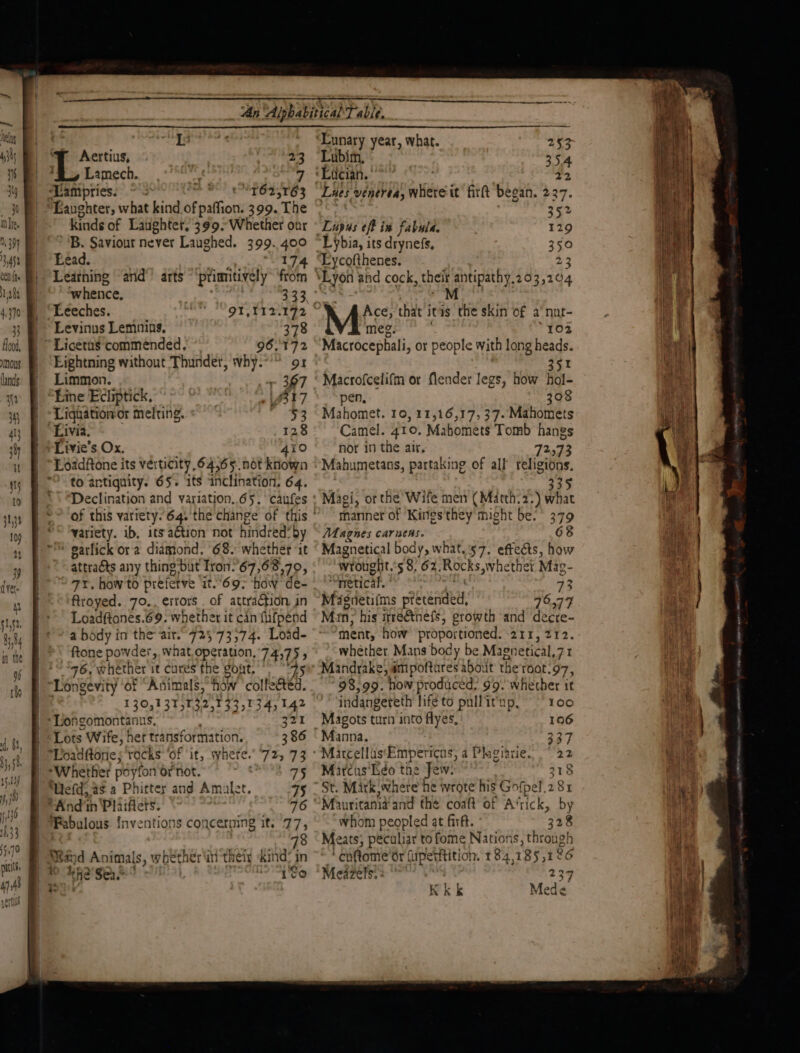 An Alphabitical Table.
L
Aertius, 23
Lamech. 7
Lampries. 162,163
Laughter, what kind of passion. 399. The
kinds of Laughter. 399. Whether our
B. Saviour never Laughed. 399. 400
Lead. 174
Learning and arts primitively from
whence. 333
Leeches. 91,112.172
Levinus Lemnius. 378
Licetus commended. 96.172
Lightning without Thunder, why. 91
Limmon. 367
Line Ecliptick. 317
Liquation or melting. 53
Livia. 128
Livie's Ox. 410
Loadſtone its verticity, 64,65. not known
to antiquity. 65. its inclination. 64.
Declination and variation. 65. cauſes
of this variety. 64. the change of this
variety. ib. its action not hindred by
garlick or a diamond. 68. whether it
attracts any thing but Iron. 67,68,70,
71. how to preſerve it. 69. how de-
ſtroyed. 70. errors of attraction in
Loadſtones. 69. whether it can ſuſpend
a body in the air. 72,73,74. Load-
ſtone powder, what operation, 74,75,
76. whether it cures the gout. 75
Longevity of Animals, how collected.
130,131,132,133,134,142
Longomontanus. 321
Lots Wife, her transformation. 386
Loadſtone; rocks of it, where. 72, 73
Whether poyſon or not. 75
Uſed, as a Philter and Amulet. 75
And in Plaiſters. 76
Fabulous Inventions concerning it. 77,
78
Land Animals, whether in their kind in
the Sea.
Lunary year, what. 253
Lubim, 354
Lucian. 22
Lues venerea, where it firſt began. 237.
352
Lupus eſt in fabula. 129
Lybia, its dryneſs, 350
Lycoſthenes. 23
Lyon and cock, their antipathy. 203,204
M
MAce, that it is the skin of a nut-
meg. 102
Macrocephali, or people with long heads.
351
Macroſceliſm or ſlender legs, how hol-
pen, 308
Mahomet. 10, 11,16,17,37. Mahomets
Camel. 410. Mahomets Tomb hangs
not in the air. 72,73
Mahumetans, partaking of all religions.
335
Magi, or the Wiſe men (Matth. 2.) what
manner of Kings they might be. 379
Magnes carneus. 68
Magnetical body, what, 57. effects, how
wrought. 58. 62. Rocks, whether Mag-
netical. 73
Magnetiſms pretended, 76,77
Man, his irrectneſs, growth and decre-
ment, how proportioned. 211, 212.
whether Mans body be Magnetical, 71
Mandrake, impoſtures about the root. 97,
98,99. how produced. 99. whether it
indangereth life to pull it up, 100
Magots turn into flyes, 106
Manna. 337
Marcellus Empericus, a Plagiarie. 22
Marcus Leo the Jew. 318
St. Mark, where he wrote his Goſpel. 281
Mauritania and the coaſt of Africk, by
whom peopled at firſt. 328
Meats, peculiar to ſome Nations, through
cuſtome or ſuperſtition. 184,185,186
Meazels. 237
Kkk Mede